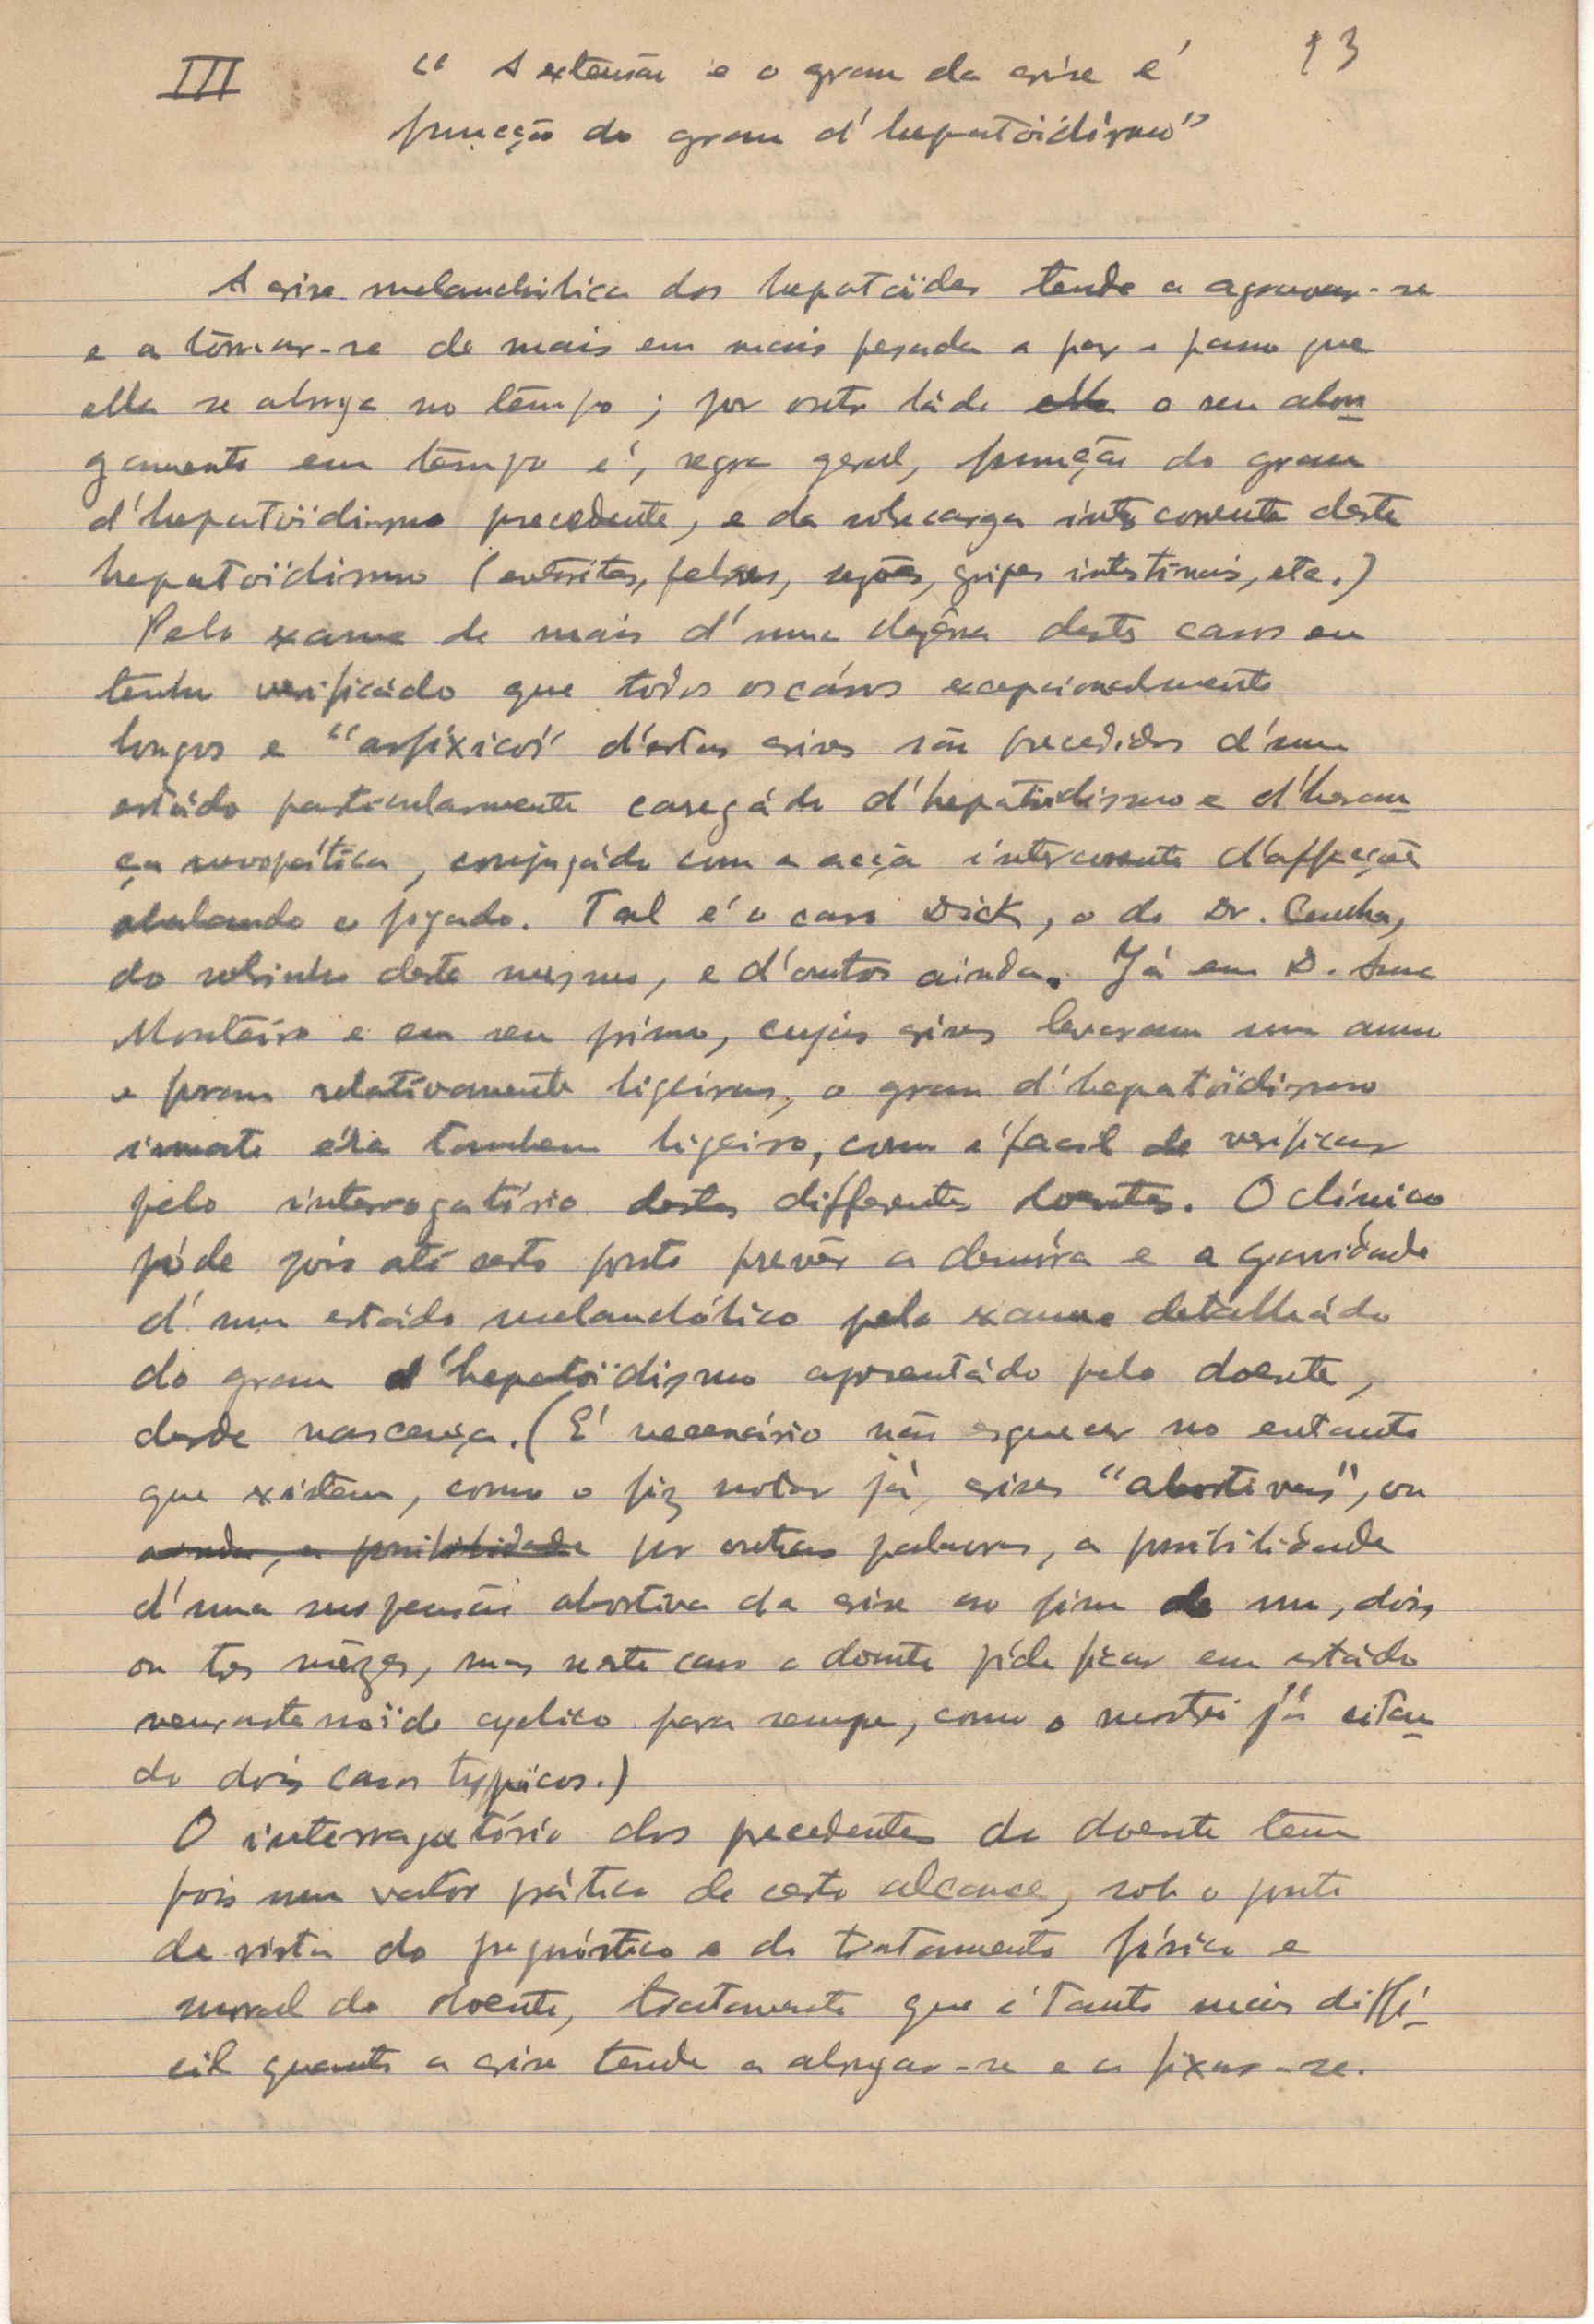 III
13
" A extensão e o grau da crise é
funcção do grau d'hepatoïdismo"
A crise melancholica dos hepatoïdes tende a agravar-se
e a tornar-se de mais em mais pesada a par e passo que
ella se alonga no tempo ; por outro ládo ella o seu alon
gamento em tempo é, regra geral, funcção do grau
d'hepatoïdismo precedente, e da sobrecarga intercorrente deste
hepatoïdismo (enterites, febres, sezões, gripes intestinais, etc.)
Pelo exame de mais d'uma dezena destes casos eu
tenho verificádo que todos os cásos excepcionalmente
longos e "asfíxicos" d'estas crises são precedidos d'um
estádo particularmente carregádo d'hepatoidismo e d'heran
ça nevropática, conjugádo com a acção intercorrente d'affecções
abalando o figado. Tal é o caso Dick, o do Dr. Cunha,
do sobrinho deste mesmo, e d'outros ainda. Já em D. Anna
Monteiro e em seu primo, cujas crises levaram um anno
e foram relativamente ligeiras, o grau d'hepatoïdismo
innato éra tambem ligeiro, como é facil de verificar
pelo interrogatório destes differentes doentes. O clínico
póde pois até certo ponto prevêr a demóra e a gravidade
d'um estádo melancólico pelo exame detalhádo
do grau d'hepatoïdismo apresentádo pelo doente,
desde nascença. (É necessário não esquecer no entanto
que existem, como o fiz notar já, crises "abortivas", ou
ainda, a possibilidade por outras palavras, a possibilidade
d'uma suspensão abortiva da crise ao fim de um, dois
ou tres mêzes, mas neste caso o doente póde ficar em estádo
neurastenoïde cyclico para sempre, como o mostrei já citan
do dois casos typicos.)
O interrogatório dos precedentes do doente tem
pois um valor prático de certo alcance, sob o ponto
de vista do prognóstico e do tratamento físico e
moral do doente, tratamento que é tanto mais diffí
cil quanto a crise tende a alongar-se e a fixar-se.